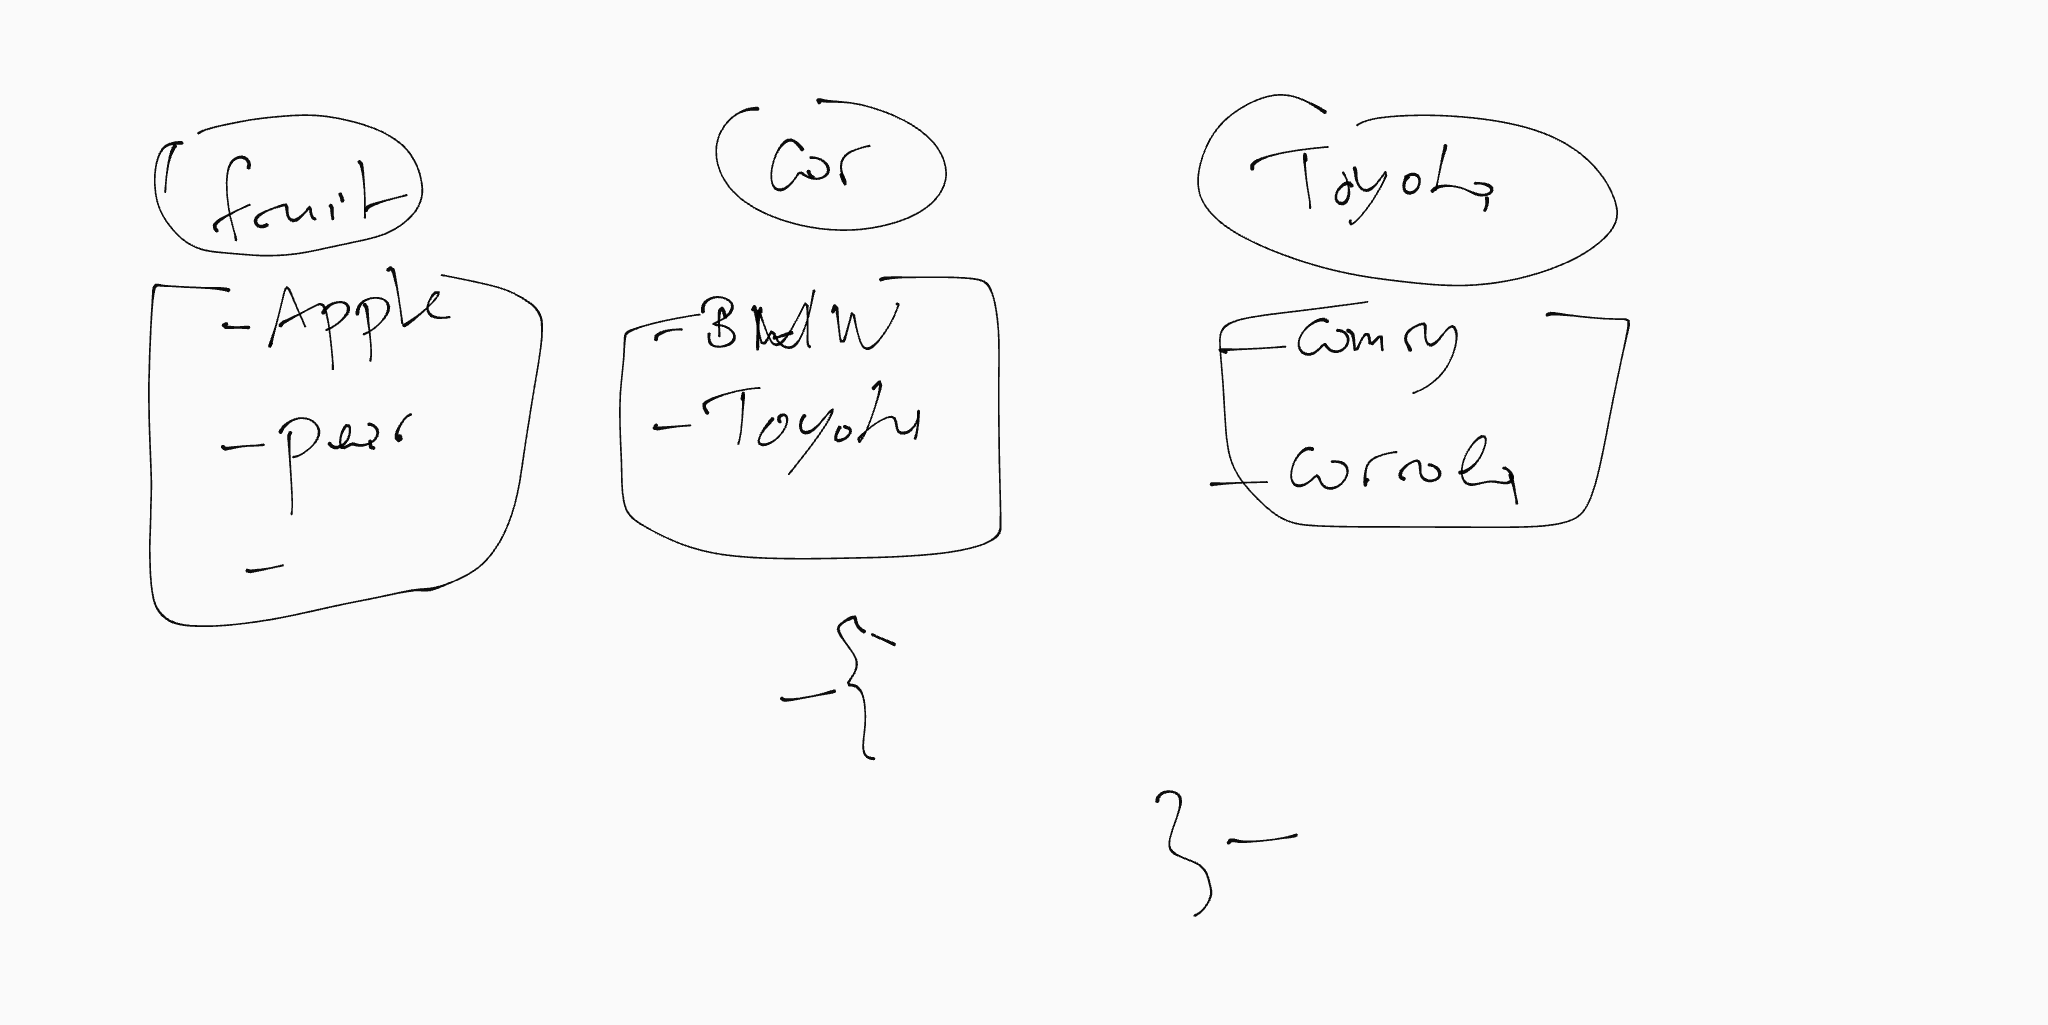 fruit
- Apple
- pear
-
Car
- BMW
- Toyota
- {-
Toyota
- Camry
- Corrola
} -